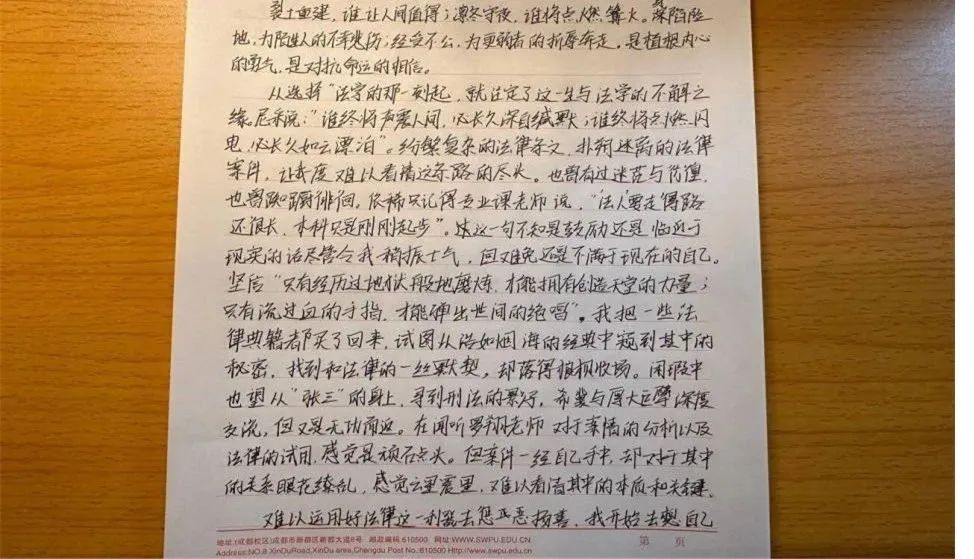 裂土重建，谁让人间值得；凛冬守夜，谁将点燃篝火。深陷险
地，为陌生人的不幸悲伤；经受不公，为更弱者的折辱奔走。是植根内心
的勇气，是对抗命运的相信。
从选择“法学的那一刻起，就注定了这一生与法学的不解之
缘。尼采说：“谁终将声震人间，必长久深自缄默；谁终将点燃闪
电，必长久如云漂泊”。纷繁复杂的法律条文，扑朔迷离的法律
案件，让我一度难以看清这条路的尽头。也曾有过迷茫与彷徨，
也曾踟蹰徘徊，依稀只记得专业课老师说，“法人要走得路
还很长，本科只是刚刚起步”。这一句不知是鼓励还是临近于
现实的话尽管令我稍振士气，但难免还是不满于现在的自己。
坚信“只有经历过地狱般地磨炼，才能拥有创造天堂的力量；
只有流过血的手指，才能弹出世间的绝唱”。我把一些法
律典籍都买了回来，试图从浩如烟海的经典中窥到其中的
秘密，找到和法律的一丝默契，却落得狼狈收场。闲暇中
也望从“张三”的身上，寻到刑法的累行，希冀与厚大深度
交流，但又是无功而返。在闻听罗翔老师对于案情的分析以及
法律的试用，感觉是顽石点头。但案件一经自己手中，却对于其中
的关系眼花缭乱，感觉云里雾里，难以看清其中的本质和关键。
难以运用好法律这一利器去惩恶扬善，我开始去想自己
地址:(成都校区)成都市新都区新都大道8号 邮政编码:610500 网址:WWW.SWPU.EDU.CN
Address:NO.8 XinDuRoad,XinDu area,Chengdu Post No.:610500 Http://www.swpu.edu.cn
第 页